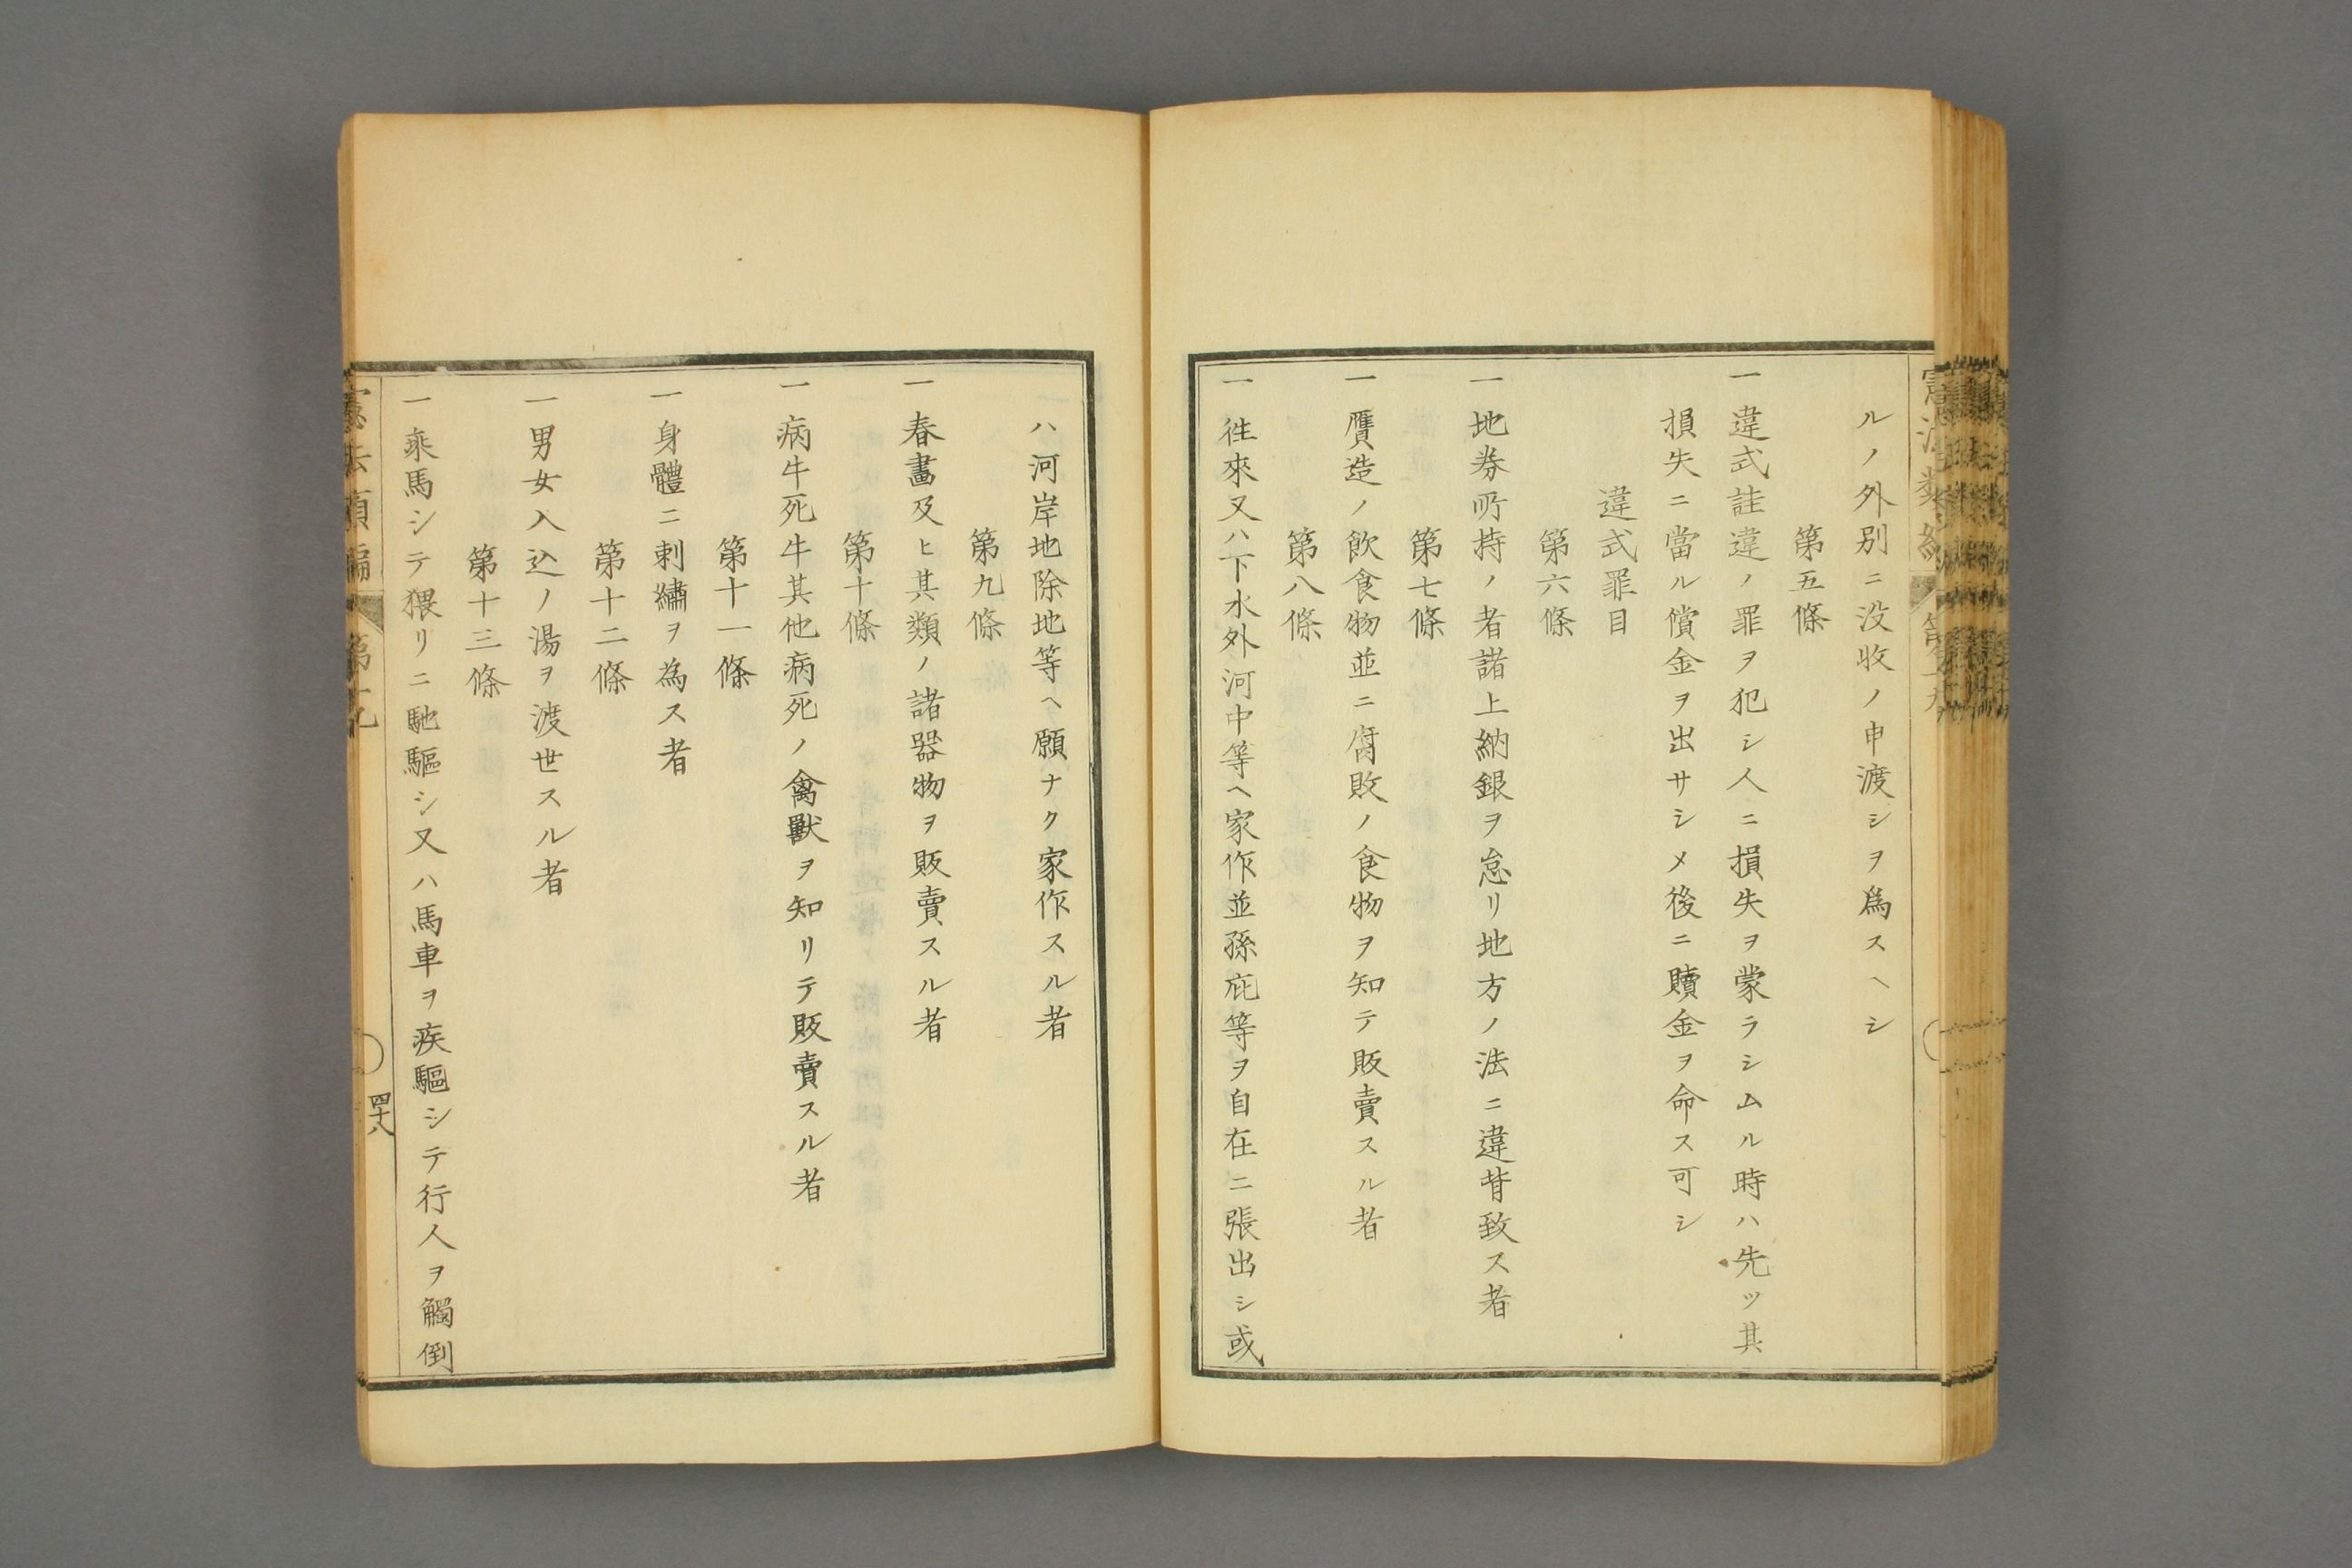 ルノ外別ニ没收ノ申渡シヲ爲スヘシ
第五條
一違式詿違ノ罪ヲ犯シ人ニ損失ヲ蒙ラシムル時ハ先ツ其
損失ニ當ル償金ヲ出サシメ後ニ贖金ヲ命ス可シ
違式罪目
第六條
一地券所持ノ者諸上納銀ヲ怠リ地方ノ法ニ違背致ス者
第七條
一贋造ノ飲食物並ニ腐敗ノ食物ヲ知テ販賣スル者
第八條
一往來又ハ下水外河中等ヘ家作並孫庇等ヲ自在ニ張出シ或
ハ河岸地除地等ヘ願ナク家作スル者
第九條
一春畫及ヒ其類ノ諸器物ヲ販賣スル者
第十條
一病牛死牛其他病死ノ禽獸ヲ知リテ販賣スル者
第十一條
一身體ニ刺繡ヲ為ス者
第十二條
一男女入込ノ湯ヲ渡世スル者
第十三條
一乘馬シテ猥リニ馳驅シ又ハ馬車ヲ疾驅シテ行人ヲ觸倒
四十八